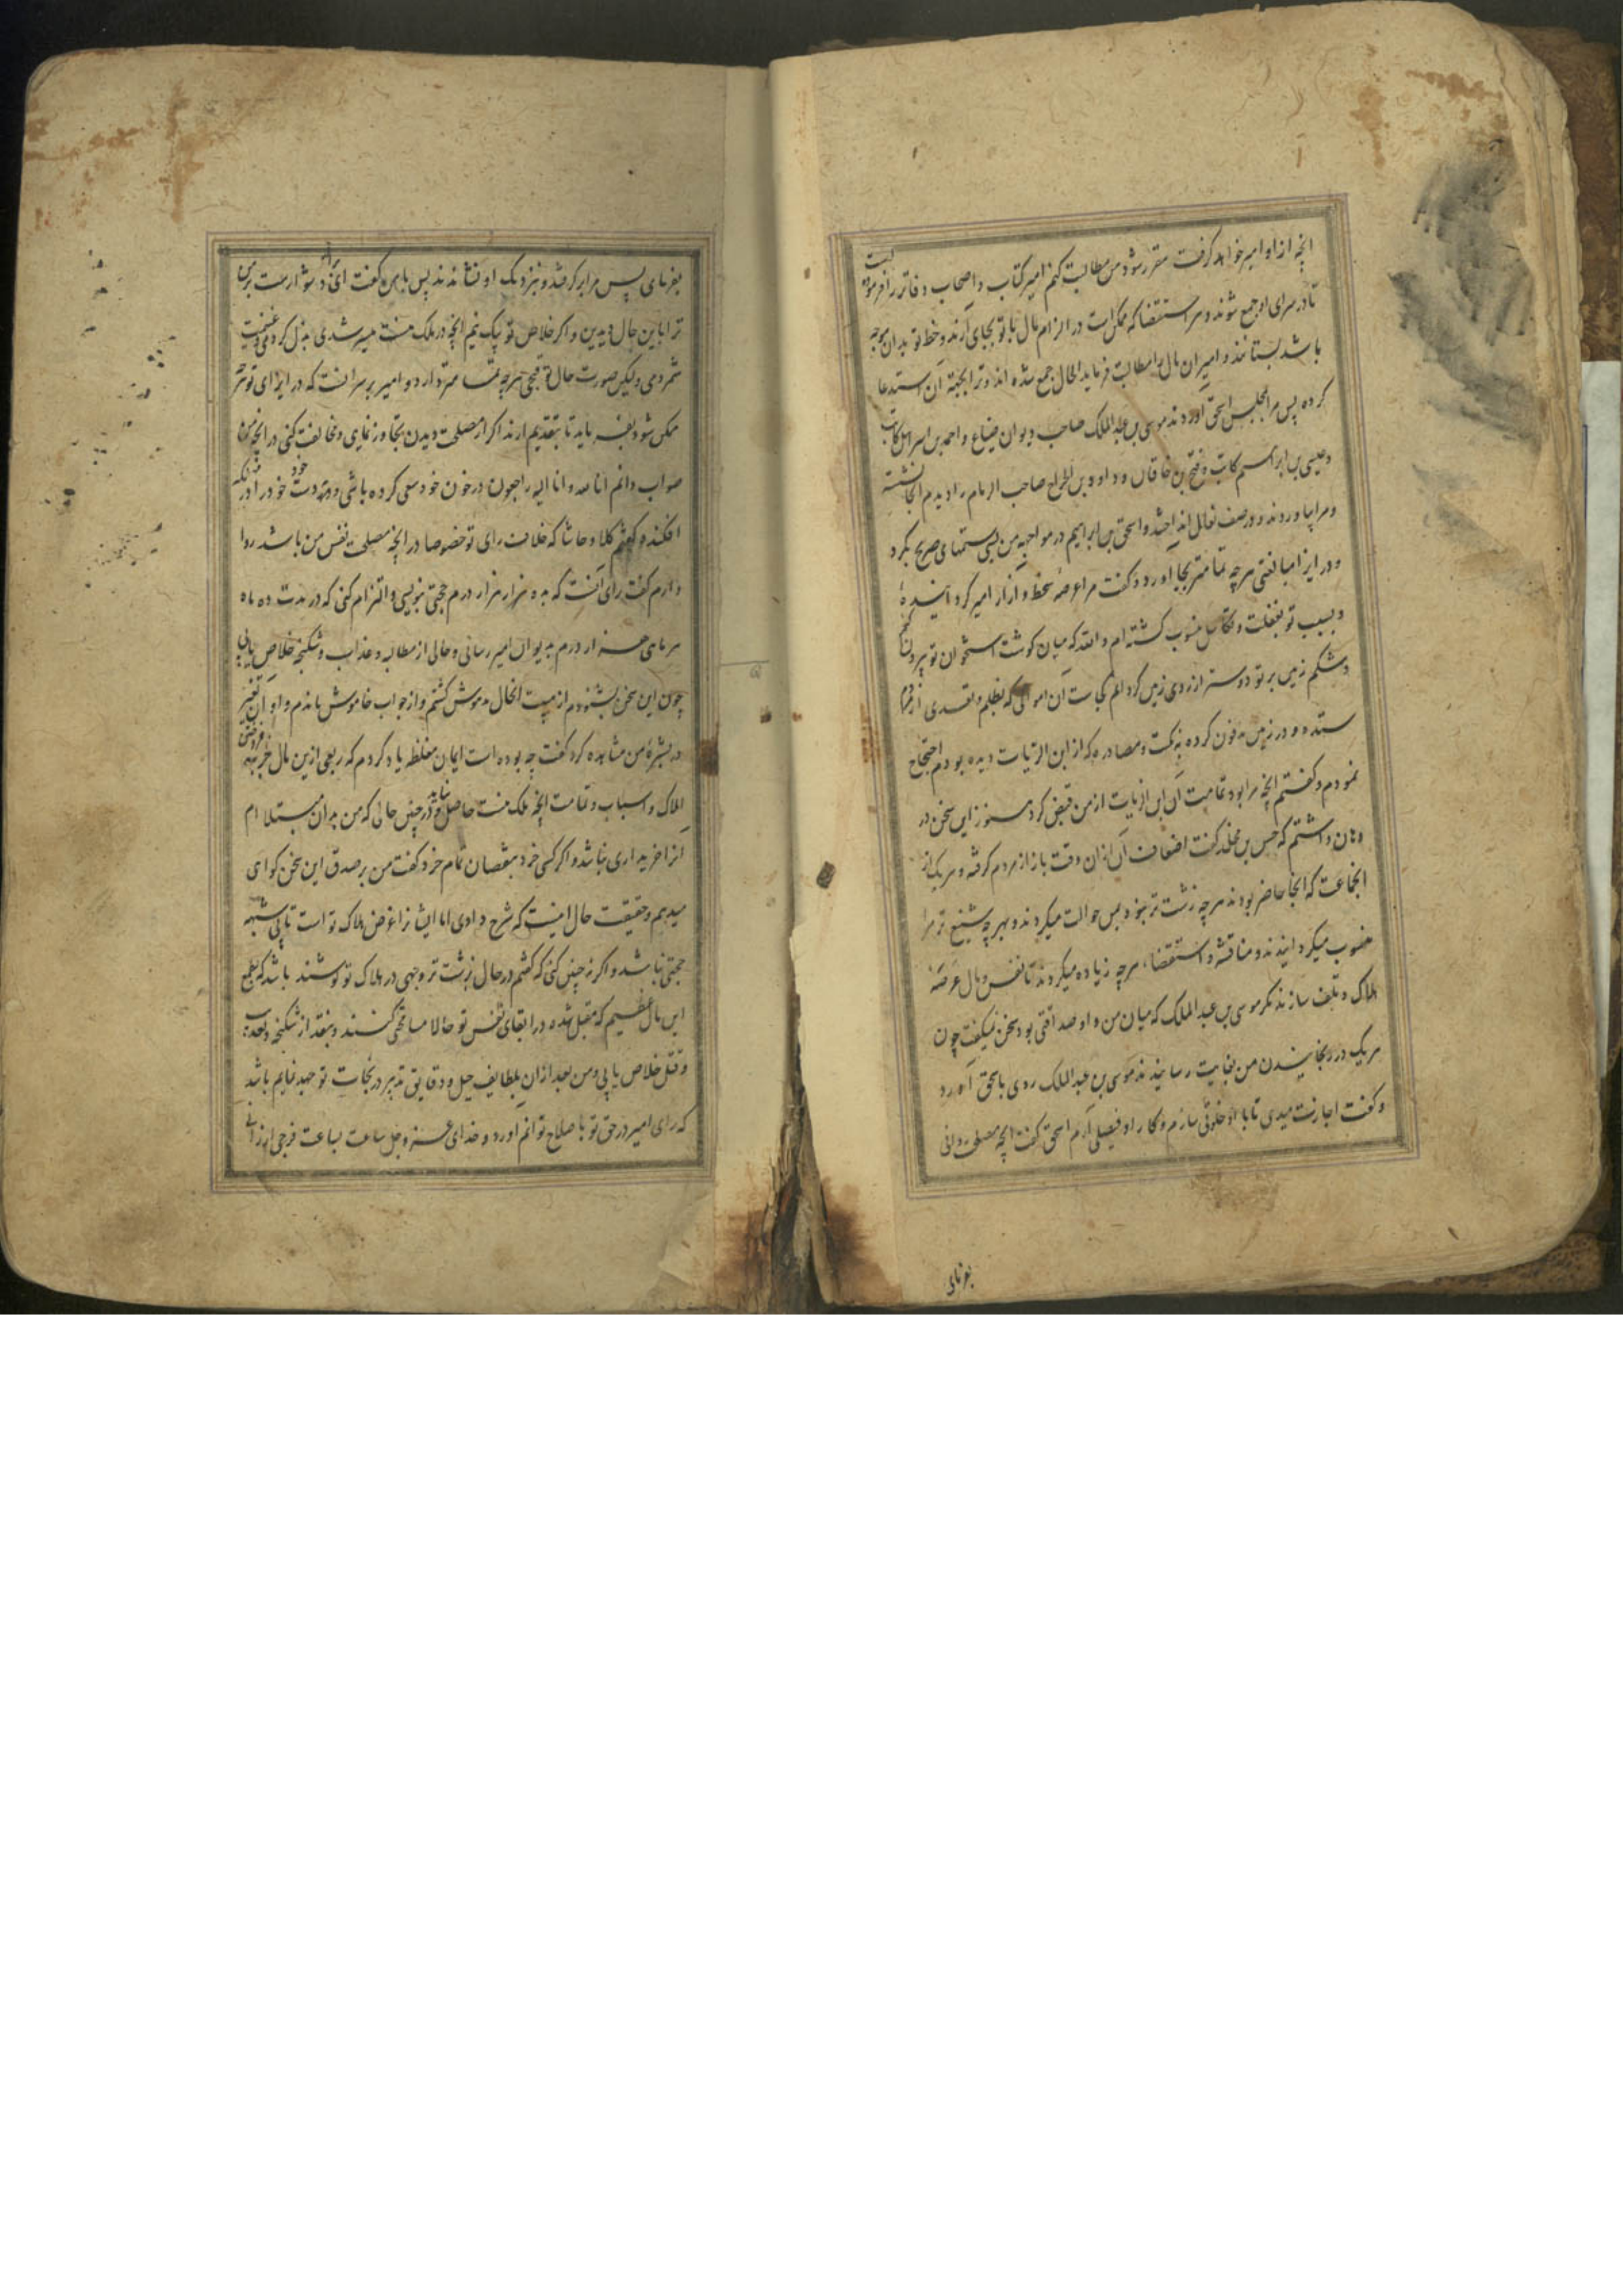 انچه از او امیر خواهد گرفت مقرر شود من مطالبت کنم امیر کتاب و اصحاب دفاتر را فرموده است
تا در سرای او جمع شوند و هر استقضا که ممکن است در الزام مال با تو بجای آرند و خط تو بدان موجه
باشد بستانند و امیر ان مال را مطالبت فرماید الحال جمع شده اند و ترا بجهة ان استدعا
کرده پس مرا بمجلس اسحق آوردند موسی بن عبد الملک صاحب دیوان ضیاع و احمد بن اسرائیل کاتب
وعیسی بن ابراهیم کاتب و فتح بن خاقان و داود بن الجراح صاحب الزمام را دیدم انجا نشسته
و مرا بیاوردند و در صف نعال انداختند و اسحق بن ابراهیم در مواجهه من بسی ستمهای صریح بکرد
و در ایذا مبالغتی هرچه تمامتر بجا اورد و گفت مرا عرضه سخط و آزار امیر گردانیده
و بسبب تو بغفلت و تکاسل منسوب گشته ام والله که میان گوشت و استخوان تو بیرون کنم
و شکم زمین بر تو دوستر از روی زمین گردانم کجاست ان اموالی که بظلم و تعدی از مردم
ستده و در زمین مدفون کرده به نکبت و مصادره که از ابن الزیات دیده بودم احتجاج
نمودم و گفتم انچه مرا بود تمامیت ان ابن الزیات از من قبض کرد هنوز این سخن در
دهان داشتم که حسن بن مخلد گفت اضعاف ان ازان وقت باز از مردم گرفته و هر یک از
انجماعت که انجا حاضر بودند هرچه زشت تر بود بمن حوالت میکردند و بهر چه شنیع تر مرا
منسوب میگردانیدند و مناقشه و استقضا هرچه زیاده میکردند تا نفس و مال عرضه
هلاک و تلف سازند مگر موسی بن عبد الملک که میان من و او صداقتی بود سخن نمیگفت چون
هریک در رنجانیدن من بغایت رسانیدند موسی بن عبد الملک روی باسحق آورد
و گفت اجازت میدهی تا با او خلوتی سازم و کار او فیصلی آرم اسحق گفت انچه مصلحت دانی
بفرمای
بفرمای پس مرا برگرفتند و نزدیک او نشاندند پس با من گفت ای برادر دشوارست بر من
ترا باین حال دیدن و اگر خلاص تو بیک نیم انچه در ملک منست میسر شدی بذل کردمی و غنیمت
شمردمی ولیکن صورت حال تو قبحی هرچه تمامتر دارد و امیر بر سر انست که در ایذای تو هرچه
ممکن شود بفرماید تا بتقدیم ارند اگر از مصلحت دیدن تجاوز نمای و مخالفت کنی در انچه من
صواب دانم انا لله وانا الیه راجعون در خون خود سعی کرده باشی و بدست خود خود را در مهلکه
افکنده گفتم کلا و حاشا که خلاف رای تو خصوصا در انچه مصلحت نفس من باشد روا
دارم گفت رای انست که بده هزار هزار درم حجتی بنویسی و التزام کنی که در مدت ده ماه
هر ماهی هزار هزار درم بدیوان امیر رسانی و حالی از مطالبه و عذاب و شکنجه خلاص یابی
چون این سخن بشنودم از هیبت انحال مدهوش گشتم و از جواب خاموش ماندم و او ان تغیر
در بشرهٔ من مشاهده کرد گفت چه بوده است ایمان مغلظه یاد کردم که ربعی ازین مال جز بفروختن
املاک و اسباب و تمامت انچه ملک منست حاصل نیاید و در چنین حالی که من بدان مبتلا ام
انرا خریداری نباشد و اگر کسی خرد بنقصان تمام خرد گفت من بر صدق این سخن گواهی
میدهم و حقیقت حال اینست که شرح دادی اما ایشانرا غرض هلاک تو است تا بی شبهه
حجتی نباشد و اگر نه چنین کنی که گفتم در حال بزشت تر وجهی در هلاک تو کوشند باشد که بطمع
این مال عظیم که متقبل شده در ابقای نفس تو حالا مسامحتی کنند و بنقد از شکنجه و عذاب
و قتل خلاص یابی و من بعد ازان بلطایف حیل و دقایق تدبیر در نجات تو جهد نمایم باشد
که رای امیر در حق تو باصلاح توانم آورد و خدای عز وجل ساعت بساعت فرجی ارزانی